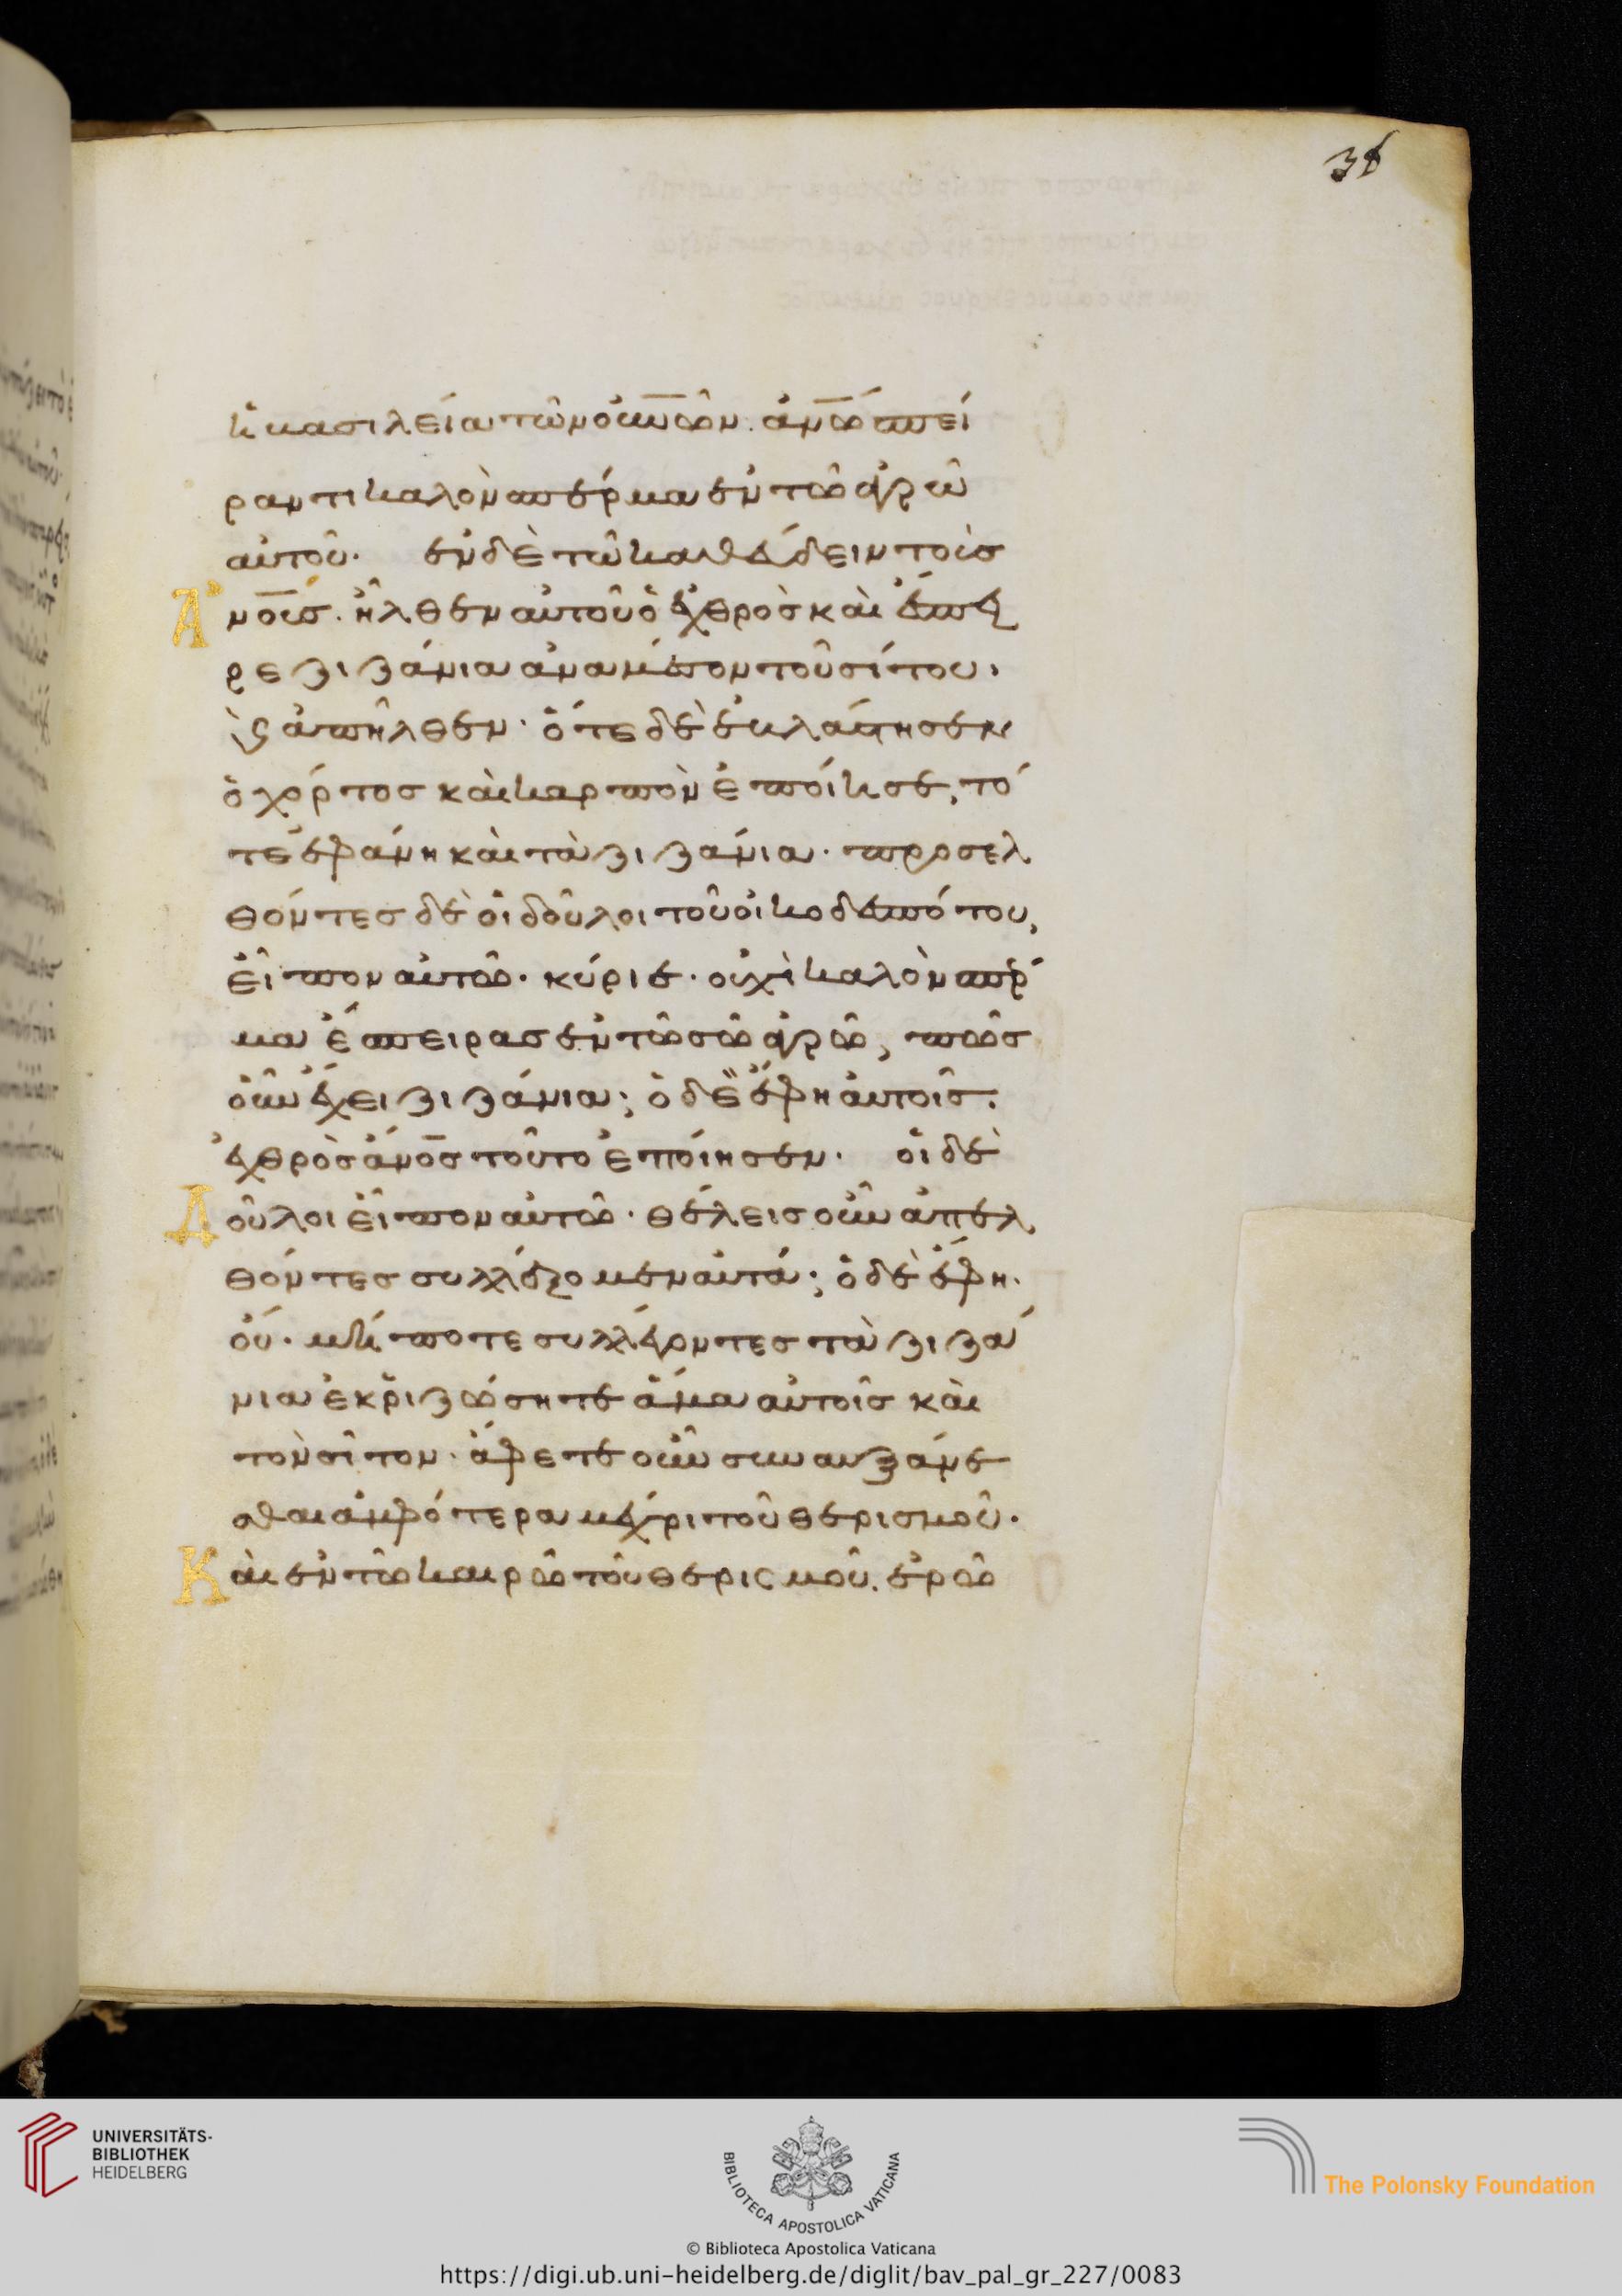 38
ἡ βασιλεία τῶν οὐν̅ῶν. ἀν̅ῶ σπεί
ραντι καλὸν σπέρμα ἐν τῶ ἀγρῶ
αὐτοῦ· ἐν δὲ τῶ καθεύδειν τοὺσ
Ἀν̅ουσ. ἦλθεν αὐτοῦ ὁ ἐχθρὸσ καὶ ἔσπει
ρε ζιζάνια ἀναμέσον τοῦ σίτου·
ϗ̀ ἀπῆλθεν· ὅτε δὲ ἐβλάστησεν
ὁ χόρτοσ καὶ καρπὸν ἐποίησε, τό
τε ἐφάνη καὶ τὰ ζιζάνια· προσελ
θόντεσ δὲ οἱ δοῦλοι τοῦ οἰκοδεσπότου,
εἶπον αὐτῶ· κύριε· οὐχὶ καλὸν σπέρ
μα ἔσπειρασ ἐν τῶ σῶ ἀγρῶ, πῶσ
οὖν ἔχει ζιζάνια; ὁ δὲ ἔφη αὐτοῖσ.
ἐχθρὸσ ἄν̅οσ τοῦτο ἐποίησεν· οἱ δὲ
Δοῦλοι εἶπον αὐτῶ· θέλεισ οὖν ἀπελ
θόντεσ συλλέξομεν αὐτά; ὁ δὲ ἔφη·
οὔ· μήποτε συλλέγοντεσ τὰ ζιζά
νια ἐκριζώσητε ἅμα αὐτοῖσ καὶ
τὸν σῖτον· ἄφετε οὖν συναυξάνε
σθαι ἀμφότερα μέχρι τοῦ θερισμοῦ·
Καὶ ἐν τῶ καιρῶ τοῦ θερισμοῦ. ἐρῶ
UNIVERSITÄTS-
BIBLIOTHEK
HEIDELBERG
BIBLIOTECA APOSTOLICA VATICANA
© Biblioteca Apostolica Vaticana
The Polonsky Foundation
https://digi.ub.uni-heidelberg.de/diglit/bav_pal_gr_227/0083